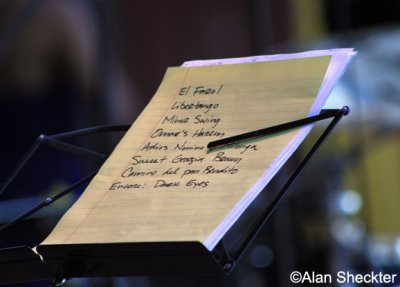 El Farol
Libertango
Minor Swing
Adios Nonino
Sweet Georgia Brown
Camino del pan Bendito
Encore: Dark Eyes
©Alan Sheckter